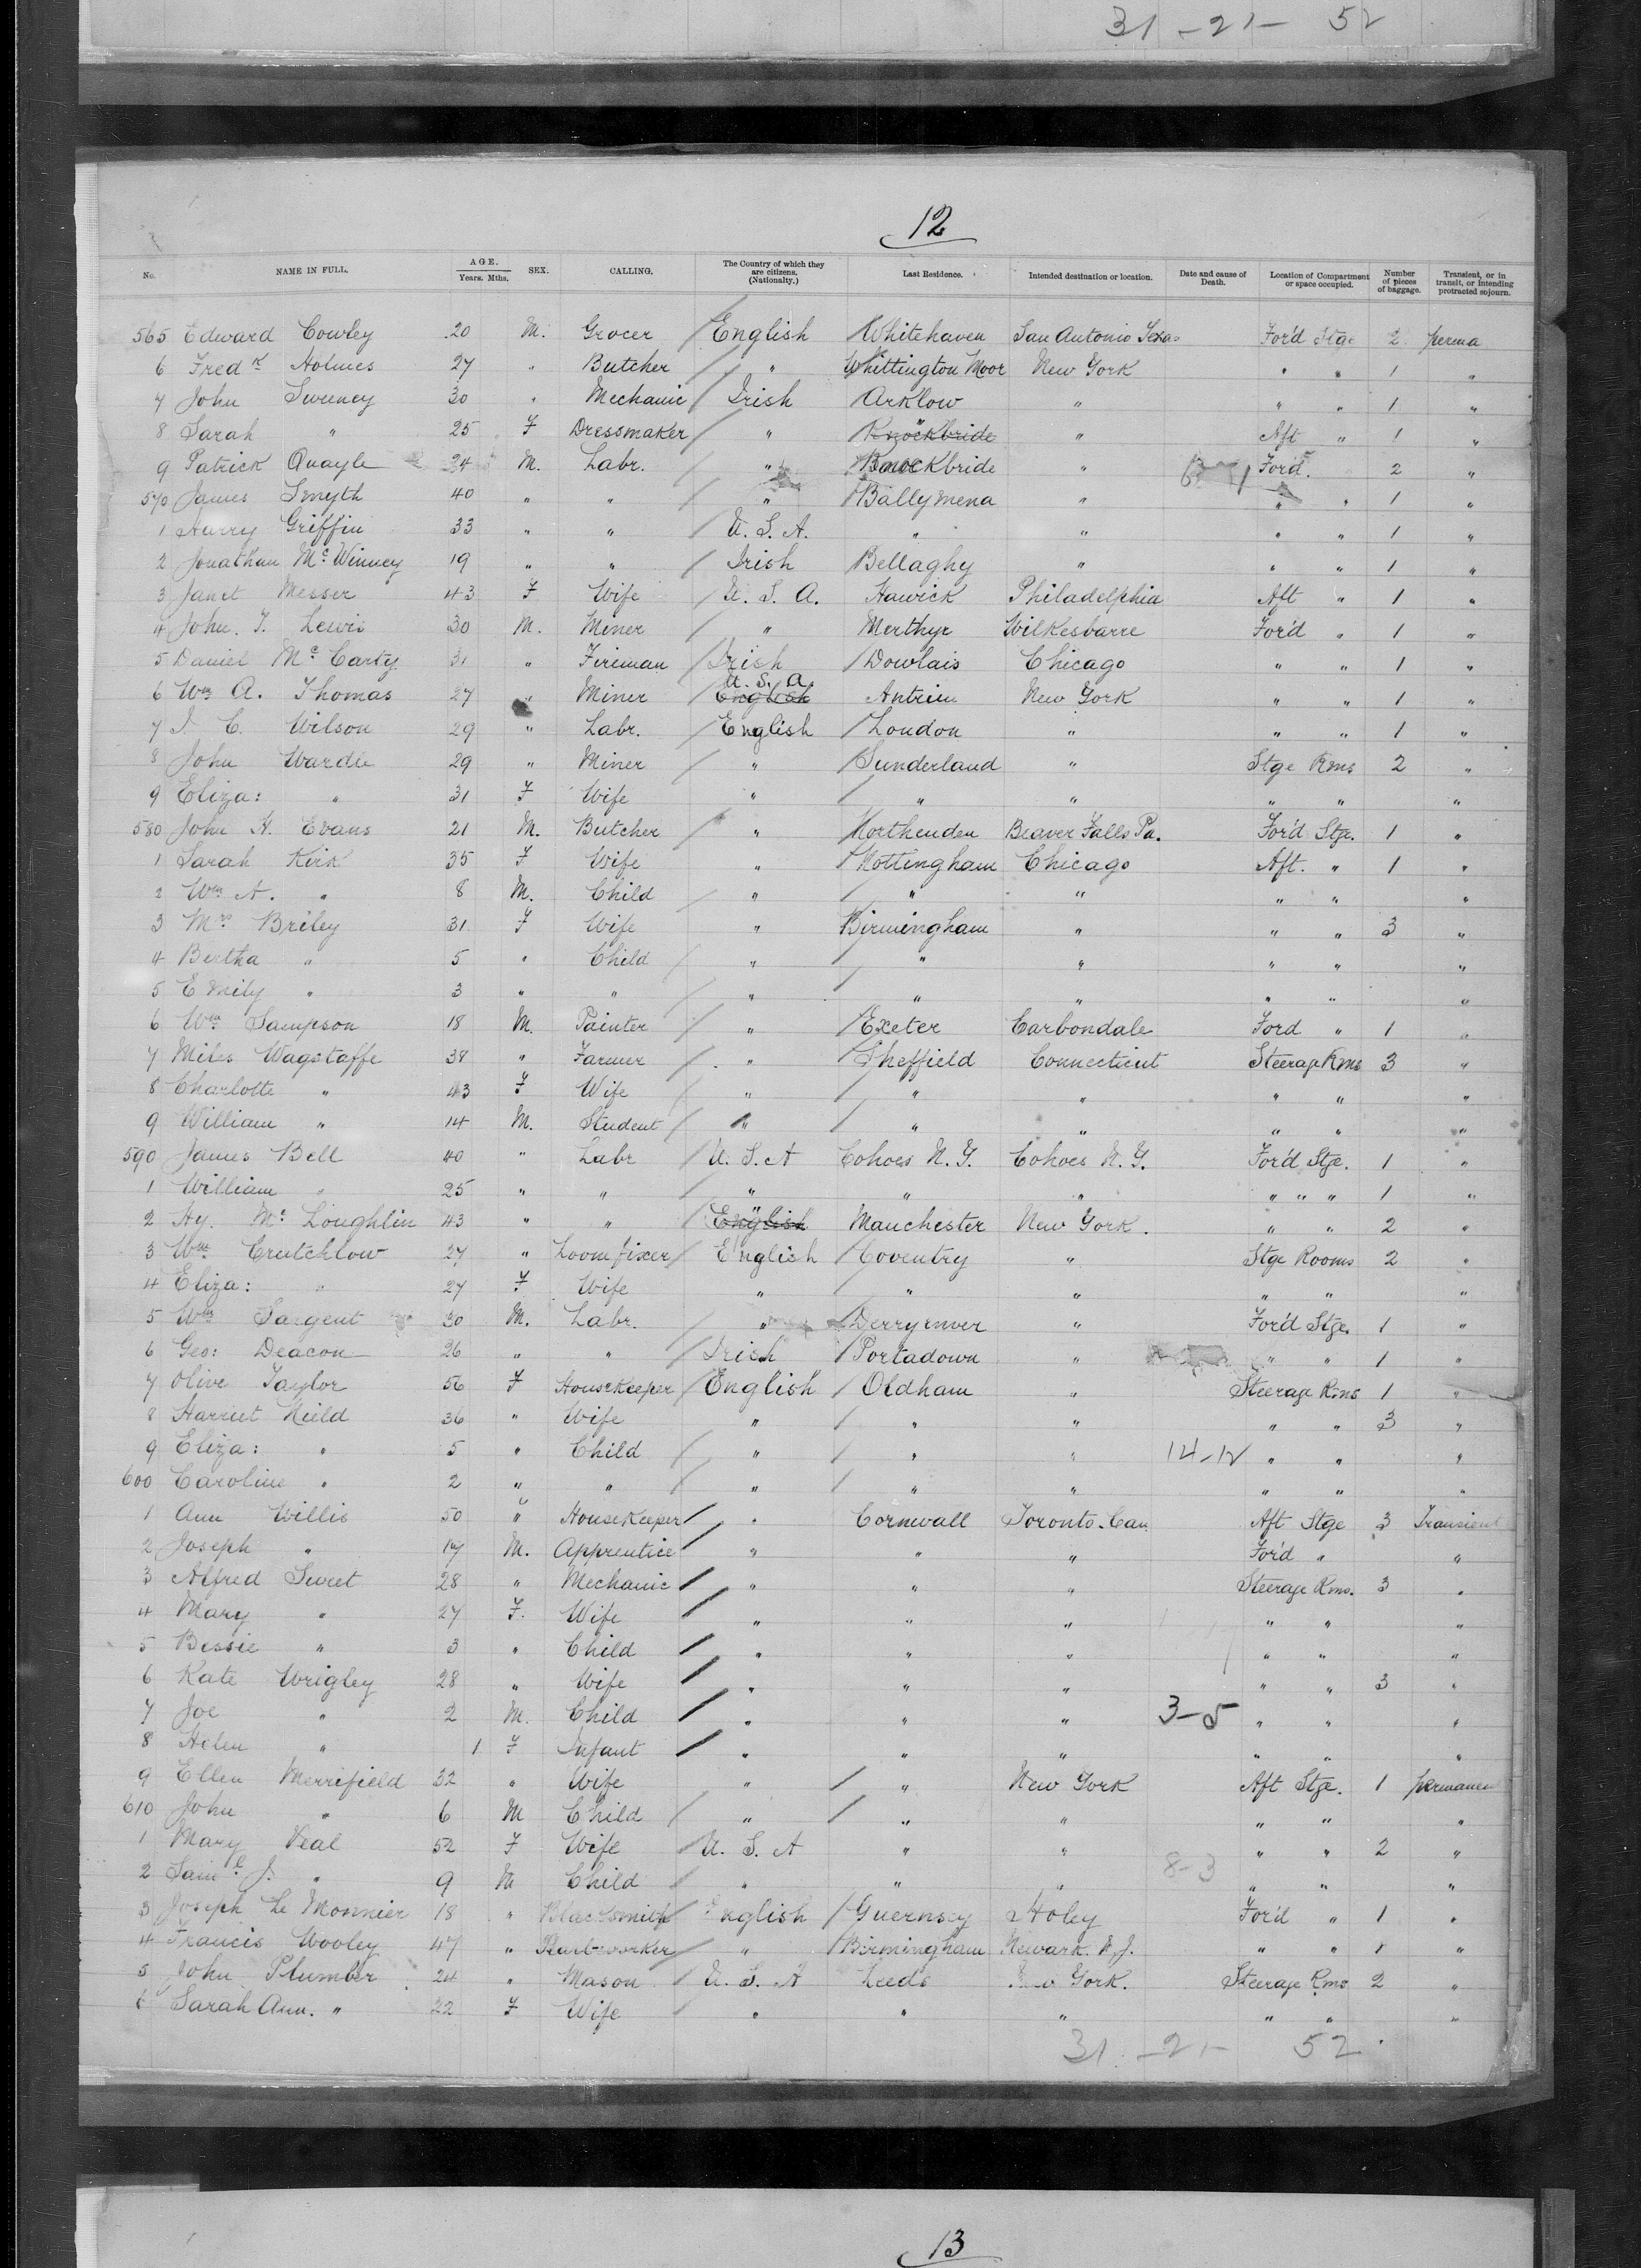 31 - 21 - 52
12
No. NAME IN FULL. AGE. Years. Mths. SEX. CALLING. The Country of which they are citizens. (Nationalty.) Last Residence. Intended destination or location. Date and cause of Death. Location of Compartment or space occupied. Number of pieces of baggage. Transient, or in transit, or intending protracted sojourn.
565 Edward Cowley 20 M. Grocer English Whitehaven San Antonio Texas For'd Stge 2 perma
6 Fredk Holmes 27 " Butcher " Whittington Moor New York " " 1 "
7 John Sweeney 30 " Mechanic Irish Arklow " " " 1 "
8 Sarah " 25 F Dressmaker " Knockbride " Aft " 1 "
9 Patrick Quayle 24 M. Labr. " Knockbride " For'd. " 2 "
570 James Smyth 40 " " " Ballymena " " " 1 "
1 Harry Griffin 33 " " U. S. A. " " " " 1 "
2 Jonathan McWinney 19 " " Irish Bellaghy " " " 1 "
3 Janet Messer 43 F Wife U. S. A. Hawick Philadelphia Aft " 1 "
4 John. T. Lewis 30 M. Miner " Merthyr Wilkesbarre For'd " 1 "
5 Daniel McCarty 31 " Fireman Irish Dowlais Chicago " " 1 "
6 Wm A. Thomas 27 " Miner English U. S. A. Antrim New York " " 1 "
7 J. C. Wilson 29 " Labr. English London " " " 1 "
8 John Wardle 29 " Miner " Sunderland " Stge Rms 2 "
9 Eliza: " 31 F Wife " " " " " "
580 John H. Evans 21 M. Butcher " Northenden Beaver Falls Pa. For'd Stge. 1 "
1 Sarah Kirk 35 F Wife " Nottingham Chicago Aft. " 1 "
2 Wm A. " 8 M. Child " " " " " "
3 Mrs Briley 31 F Wife " Birmingham " " " 3 "
4 Bertha " 5 " Child " " " " " "
5 Emily " 3 " " " " " " " "
6 Wm Sampson 18 M. Painter " Exeter Carbondale Ford " 1 "
7 Miles Wagstaffe 38 " Farmer " Sheffield Connecticut Steerage Rms 3 "
8 Charlotte " 43 F Wife " " " " " "
9 William " 14 M. Student " " " " " "
590 James Bell 40 " Labr U. S. A Cohoes N. Y. Cohoes N. Y. For'd Stge. 1 "
1 William " 25 " " " " " " " " 1 "
2 Hy. Mc Loughlin 43 " " English " Manchester New York. " " 2 "
3 Wm Crutchlow 27 " Loomfixer English Coventry " Stge Rooms 2 "
4 Eliza: " 27 F Wife " " " " " "
5 Wm Sargent 30 M. Labr. " " For'd Stge. 1 "
6 Geo: Deacon 26 " " Irish Portadown " " " 1 "
7 Olive Taylor 56 F Housekeeper English Oldham " Steerage Rms 1 "
8 Harriet Nield 36 " Wife " " " " " 3 "
9 Eliza: " 5 " Child " " " 14-12 " " "
600 Caroline " 2 " " " " " " " "
1 Ann Willis 50 " Housekeeper " Cornwall Toronto. Can Aft Stge 3 Transient
2 Joseph " 17 M. Apprentice " " " For'd " "
3 Alfred Sweet 28 " Mechanic " " " Steerage Rms. 3 "
4 Mary " 27 F. Wife " " " " " "
5 Bessie " 3 " Child " " " " " "
6 Kate Wrigley 28 " Wife " " " " " 3 "
7 Joe " 2 M. Child " " " 3-5 " " "
8 Helen " 1 F Infant " " " " " "
9 Ellen Merrifield 32 " Wife " " New York Aft Stge. 1 permanen
610 John " 6 M Child " " " " " "
1 Mary Veal 52 F Wife U. S. A " " " " 2 "
2 Saml J. " 9 M Child " " " 8-3 " " "
3 Joseph Le Monnier 18 " Blacksmith English Guernsey For'd " 1 "
4 Francis Wooley 47 " Birmingham Newark. N. J. " " 1 "
5 John Plumber 24 " Mason U. S. A Leeds New York. Steerage Rms 2 "
6 Sarah Ann. " 22 F Wife " " " " " "
31 - 21 - 52
13